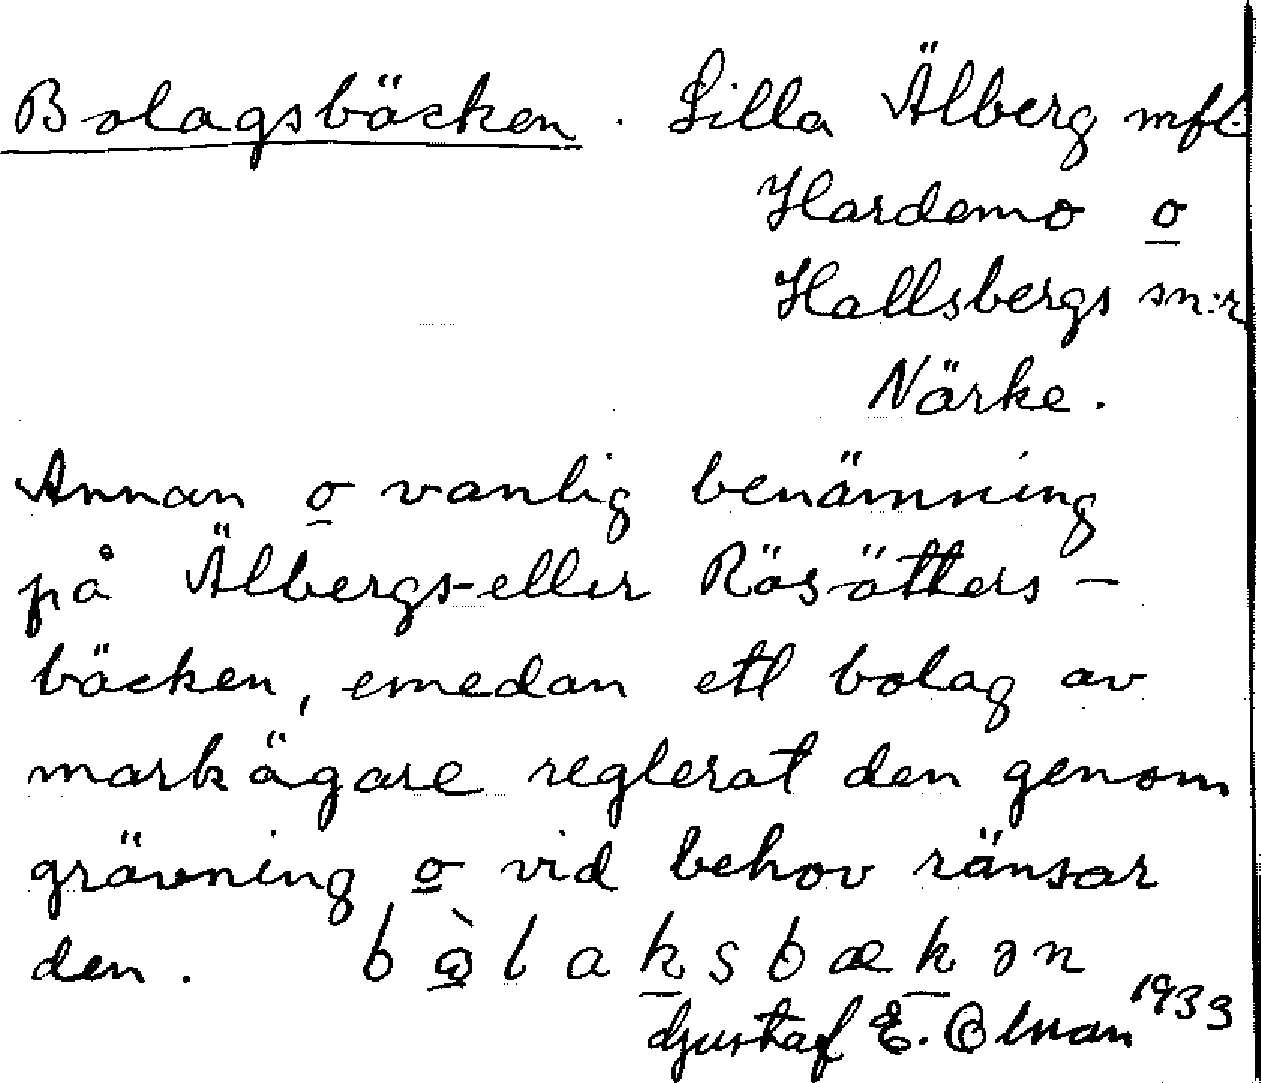 Bolagsbäcken. Lilla Älberg mfl.
Hardemo o
Hallsbergs sn:r
Närke.
Annan o vanlig benämning
på Älbergs-eller Rösätters-
bäcken, emedan ett bolag av
markägare reglerat den genom
grävning o vid behov ränsar
den. bòlaksbækən
Gustaf E. 1933